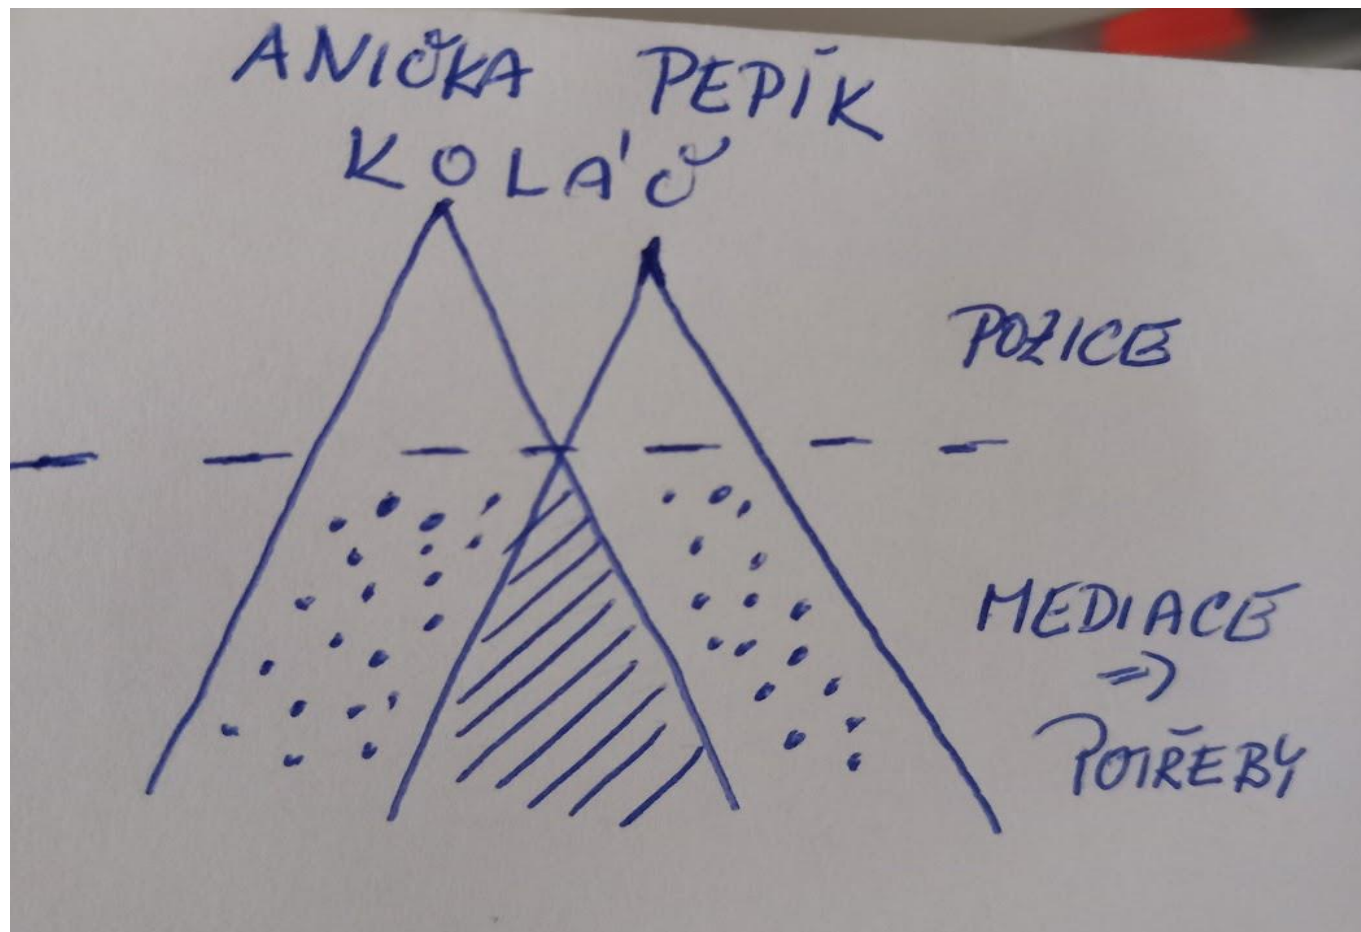 ANIČKA PEPÍK
KOLÁČ
POZICE
MEDIACE
=>
POTŘEBY